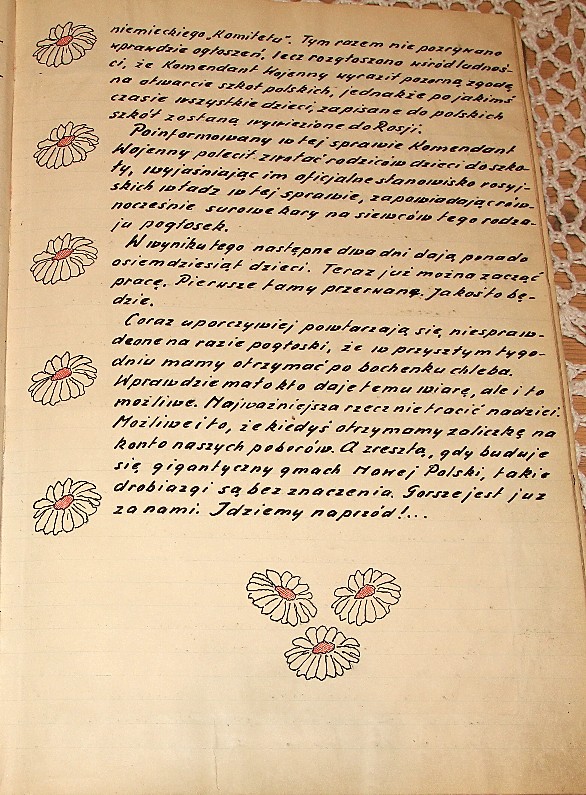 niemieckiego „Komitetu". Tym razem nie pozrywano
wprawdzie ogłoszeń, lecz rozgłoszono wśród ludnoś-
ci, że Komendant Wojenny wyraził pozorną zgodę
na otwarcie szkół polskich, jednakże po jakimś
czasie wszystkie dzieci, zapisane do polskich
szkół zostaną wywiezione do Rosji.
Poinformowany w tej sprawie Komendant
Wojenny polecił zwołać rodziców dzieci do szko-
ły, wyjaśniając im oficjalne stanowisko rosyj-
skich władz w tej sprawie, zapowiadając rów-
nocześnie surowe kary na siewców tego rodza-
ju pogłosek.
W wyniku tego następne dwa dni dają ponado
osiemdziesiąt dzieci. Teraz już można zacząć
pracę. Pierwsze tamy przerwane. Jakoś to bę-
dzie.
Coraz uporczywiej powtarzają się, niespraw-
dzone na razie pogłoski, że w przyszłym tygo-
dniu mamy otrzymać po bochenku chleba.
Wprawdzie mało kto daje temu wiarę, ale i to
możliwe. Najważniejsza rzecz nie tracić nadziei.
Możliwe i to, że kiedyś otrzymamy zaliczkę na
konto naszych poborów. A zresztą, gdy buduje
się gigantyczny gmach Nowej Polski, takie
drobiazgi są bez znaczenia. Gorsze jest już
za nami. Idziemy naprzód!...